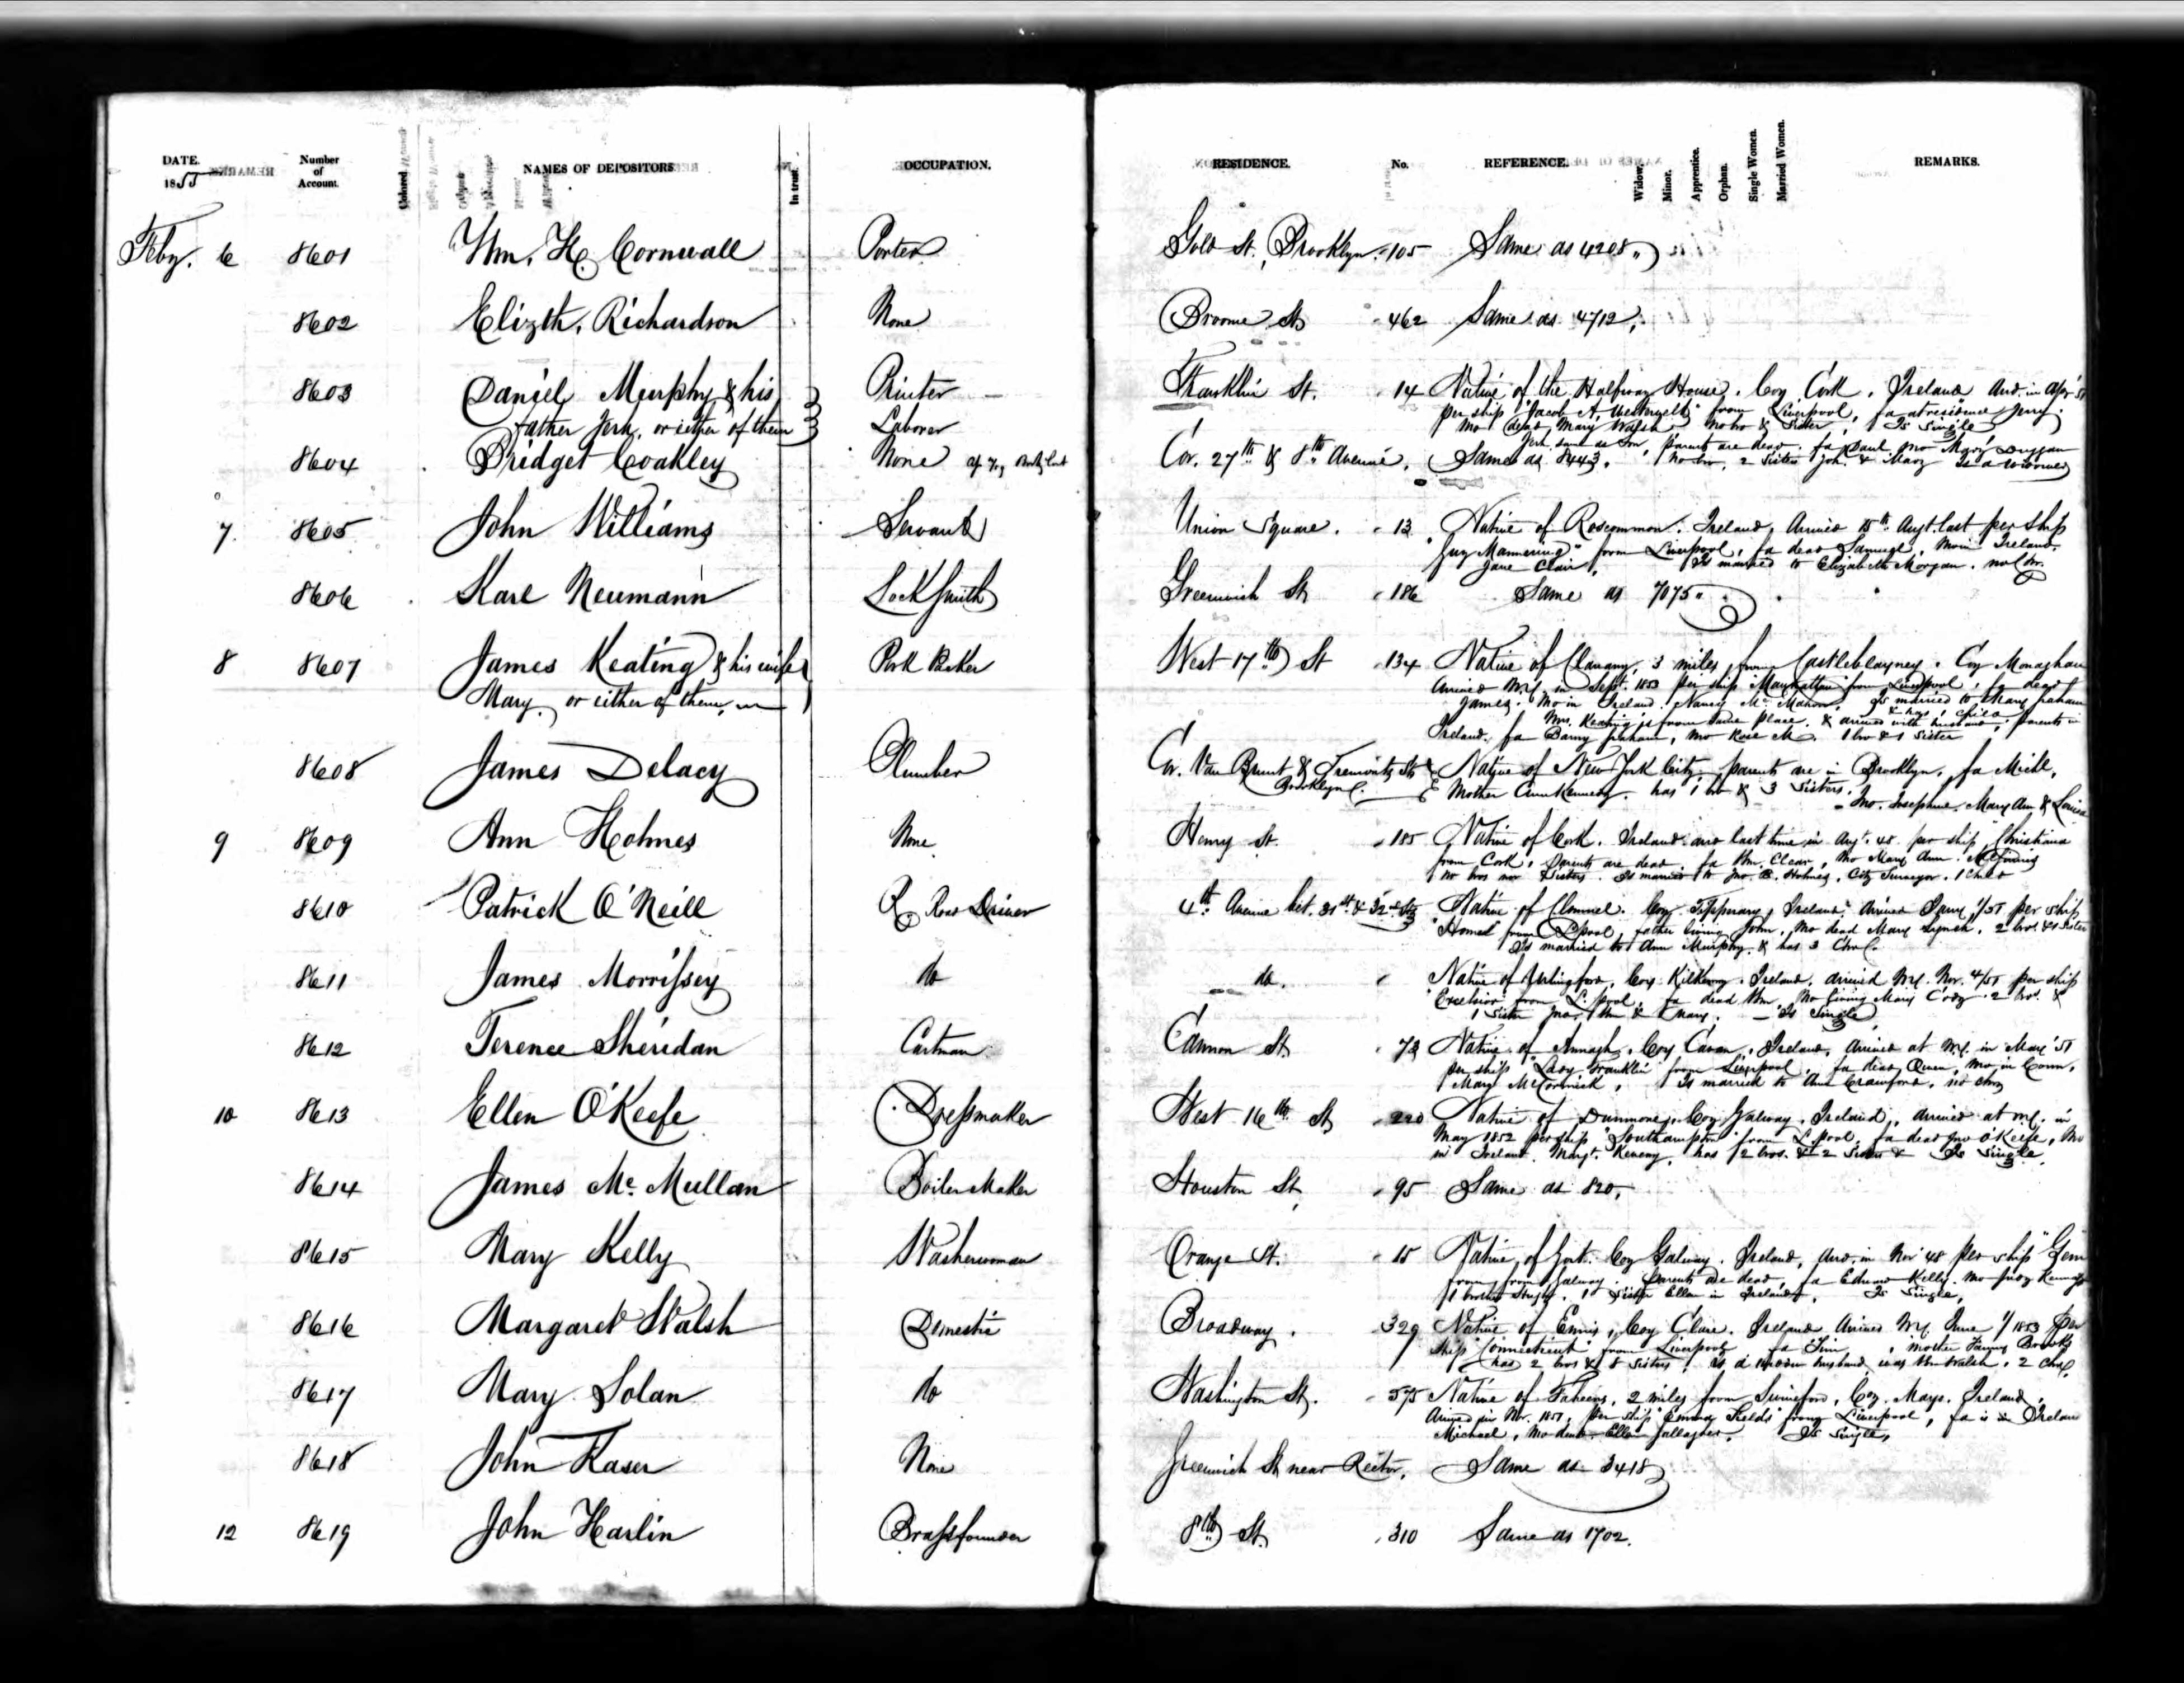 DATE. 1855
Number of Account.
NAMES OF DEPOSITORS
In trust.
OCCUPATION.
RESIDENCE.
No.
REFERENCE.
Widow.
Minor.
Apprentice.
Orphan.
Single Women.
Married Women.
REMARKS.
Feby. 6 8601 Wm. H. Cornwall Porter Gold St., Brooklyn. 105 Same as 4208
8602 Elizth. Richardson None Broome St 462 Same as 4712.
8603 Daniel Murphy & his Printer Franklin St. 14 Native of the Halfway House. Coy Cork. Ireland Arrd. in Apr '51
father Jerh. or either of them Laborer per ship "Jacob A. Westervelt" from Liverpool, fa at residence Jerry.
mo dead Mary Walsh no bro & Sister Is Single
Jerh. same as Son, parents are dead. fa Paul mo Mary Duggan
8604 Bridget Coakley None Cor. 27th & 8th Avenue. Same as 8443. no bro, 2 Sisters Joh. & Mary Is a widower
7 8605 John Williams Servant Union Square. 13 Native of Roscommon. Ireland, Arrived 15th Augt. last per Ship
"Guy Mannering" from Liverpool, fa dead Samuel. Mo in Ireland.
Jane Clair, Is married to Elizabeth Morgan. no Chr.
8606 Karl Neumann LockSmith Greenwich St 186 Same as 7075
8 8607 James Keating & his wife Pork Packer West 17th St 134 Native of 3 miles from Castleblayney. Coy Monaghan
Mary, or either of them, Arrived NY. in Sept. 1853 per ship "Manhattan" from Liverpool, fa dead
James. Mo in Ireland. Nancy McMahon. Is married to Mary Graham
& has 1 Child
Mrs. Keating is from same place. & arrived with husband, parents in
Ireland. fa Barny Graham, mo Rose M. 1 bro & 1 Sister
8608 James Delacy Plumber Cor. Van Brunt & Tremont Sts Native of New York City, parents are in Brooklyn. fa Michl,
Brooklyn Mother Ann Kennedy. has 1 bro & 3 Sisters.
Jno. Josephine. Mary Ann & Louisa
9 8609 Ann Holmes None Henry St. 185 Native of Cork. Ireland arrd last time in Augt. 48 per ship "Christiana"
from Cork, Parents are dead. fa Wm. Clear, Mo Mary Ann
no bros nor Sisters. Is married to Jno. B. Holmes, City Surveyor. 1 Child
8610 Patrick O'Neill R. Road Driver 4th Avenue bet. 31st & 32nd Sts Native of Clonmel. Coy Tipperary, Ireland. Arrived Jany. 1/51 per ship
from L'pool, father living John, Mo dead Mary Lynch. 2 bros. & 1 Sister
Is married to Ann Murphy. & has 3 Chr.
8611 James Morrissey do do. Native of Urlingford, Coy Kilkenny. Ireland, arrived NY. Nov. 4/51 per ship
"Excelsior" from L'pool. fa dead Wm. Mo living Mary Cody. 2 bros. &
1 Sister Jno. Wm & Mary. Is Single
8612 Terence Sheridan Cartman Cannon St 73 Native of Annagh, Coy Cavan, Ireland. Arrived at NY. in May '51
per ship "Lady Franklin" from Liverpool. fa dead Owen, Mo in Conn.
Mary McCormick, Is married to Ann Crawford, no Chr
10 8613 Ellen O'Keefe Dressmaker West 16th St 220 Native of Dunmore, Coy Galway. Ireland, arrived at NY. in
May 1852 per ship "Southampton" from L'pool. fa dead Jno O'Keefe, Mo
in Ireland. Margt. Keaveny. has 2 bros. & 2 Sisters & Is Single.
8614 James McMullan Boiler Maker Houston St 95 Same as 820.
8615 Mary Kelly Washerwoman Orange St. 15 Native of Gort. Coy Galway. Ireland, Arrd. in Nov '48 per ship "Gem"
from from Galway. Parents are dead, fa Edward Kelly. mo Judy
1 brother 1 Sister Ellen in Ireland. Is Single.
8616 Margaret Walsh Domestic Broadway. 329 Native of Ennis, Coy Clare. Ireland Arrived NY. June 1/1853 per
ship "Connecticut" from Liverpool fa Tim, mother Fanny Brooks
has 2 bros & 8 Sisters. Is a widow husband was Wm Walsh. 2 Chr.
8617 Mary Solan do Washington St. 575 Native of Faheens, 2 miles from Swineford, Coy. Mayo. Ireland,
Arrived in Nov. 1851, per ship "Emma Fields" from Liverpool, fa is in Ireland
Michael, Mo dead Ellen Gallagher. Is Single.
8618 John Kaser None Greenwich St near Rector. Same as 3418
12 8619 John Harlin Brassfounder 8th St. 310 Same as 1702.